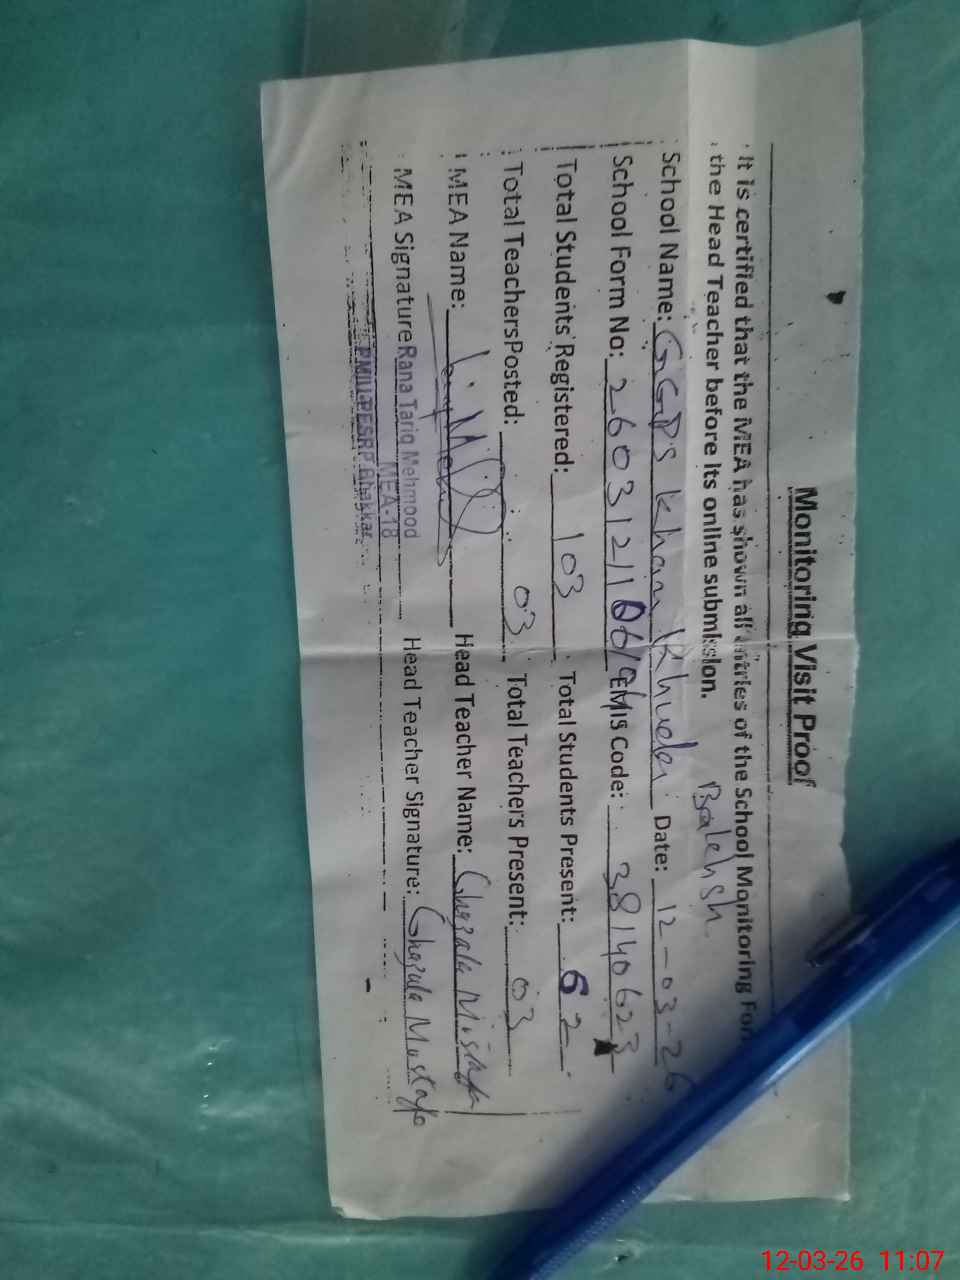 Monitoring Visit Proof
It is certified that the MEA has shown all entries of the School Monitoring Form
the Head Teacher before its online submission.
Balehsh
School Name: GGPS Khan Khuder Date: 12-03-26
School Form No: EMIS Code: 38140623
Total Students Registered: 103 Total Students Present: 62
Total Teachers Posted: 03 Total Teachers Present: 03
MEA Name: Head Teacher Name: Ghazala Mustafa
MEA Signature Rana Tariq Mehmood Head Teacher Signature: Ghazala Mustafa
MEA-18
PMIU-PESRP Bhakkar
12-03-26 11:07